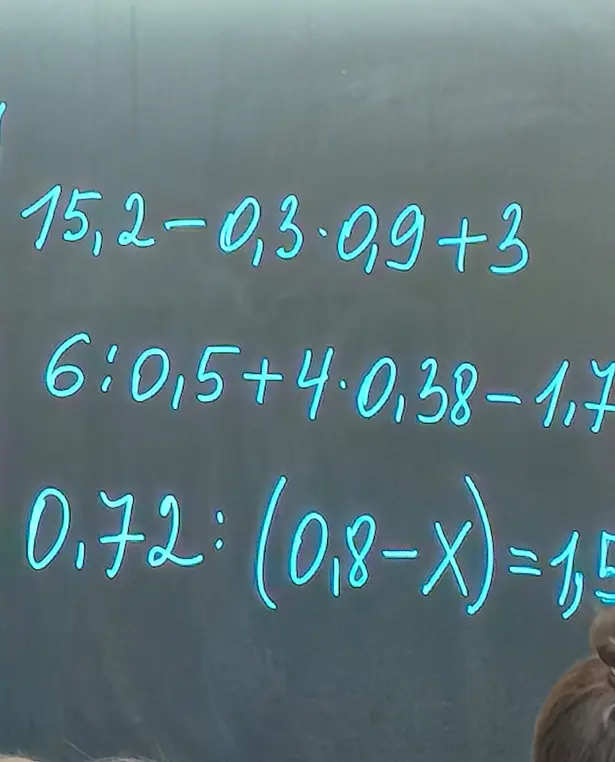 15,2-0,3·0,9+3
6:0,5+4·0,38-1,7
0,72:(0,8-x)=1,5